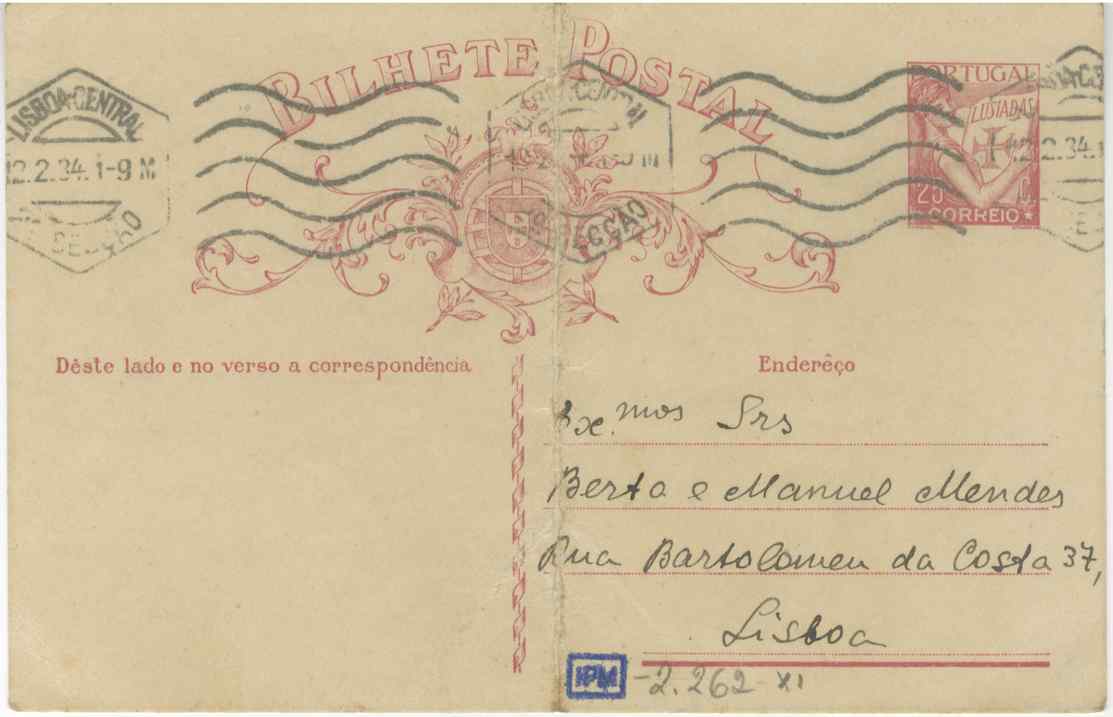 BILHETE POSTAL
PORTUGAL
LUSIADAS
25 C.
CORREIO
LISBOA-CENTRAL
12.2.34.1-9 M
Dêste lado e no verso a correspondência
Enderêço
Ex.mos Srs
Berta e Manuel Mendes
Rua Bartolomeu da Costa 37,
Lisboa
IPM
-2.262-XI